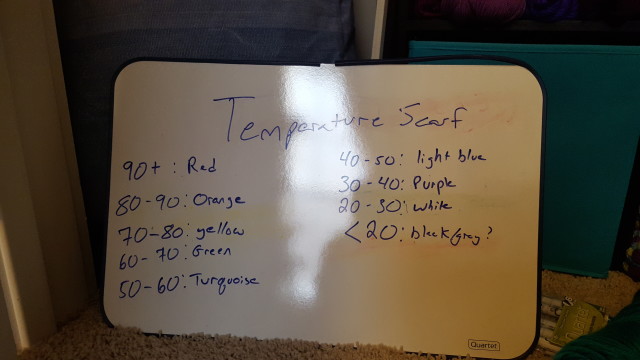 Temperature Scarf
90+ : Red
80-90: Orange
70-80: yellow
60-70: Green
50-60: Turquoise
40-50: light blue
30-40: Purple
20-30: white
<20: black/gray?
Quartet